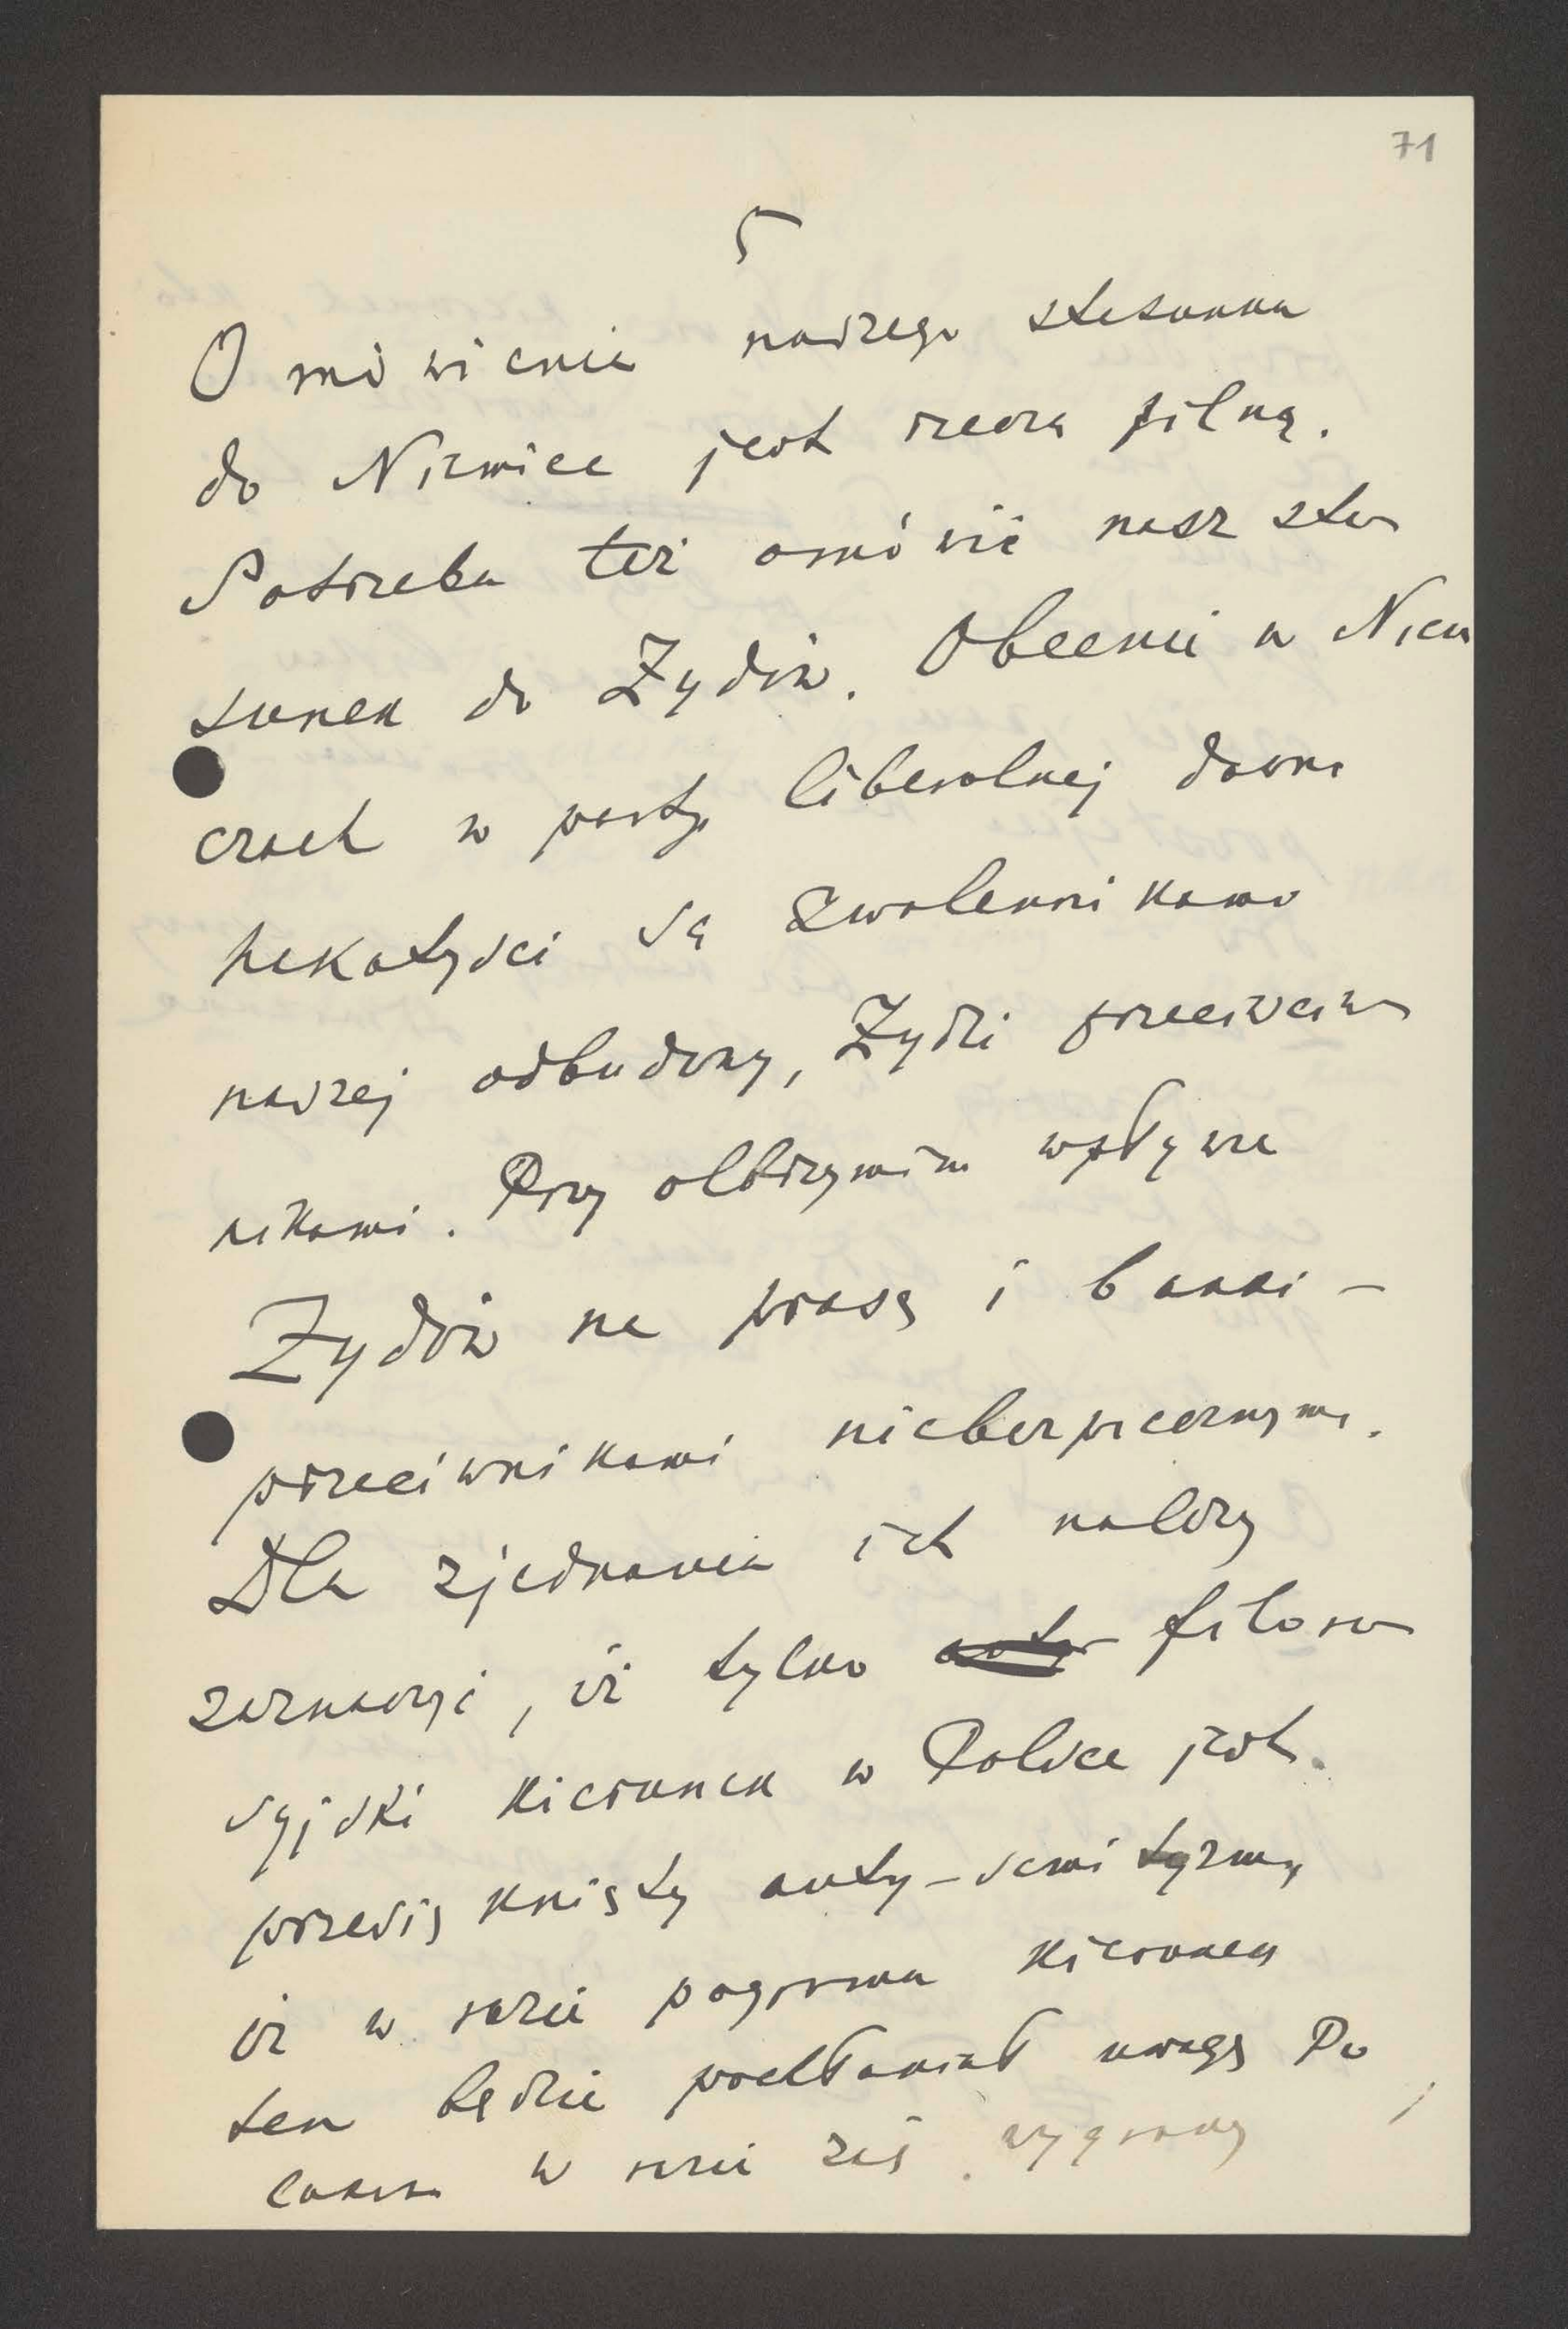 71
5
Omówienie naszego stosunku
do Niemiec jest rzeczą pilną.
Potrzeba też omówić nasz sto-
sunek do Żydów. Obecnie w Niem
czech w partyi liberalnej dawni
hakatyści są zwolennikami
naszej odbudowy, Żydzi przeciw-
nikami. Przy olbrzymim wpływie
Żydów na prasę i banki –
przeciwnikami niebezpiecznymi.
Dla zjednania ich należy
zaznaczyć, iż tylko filoro-
syjski kierunek w Polsce jest
przesiąknięty anty-semityzmem,
iż w razie pogromu kierunek
ten będzie pochłaniał uwagę Po
laków w razie zaś wygranej